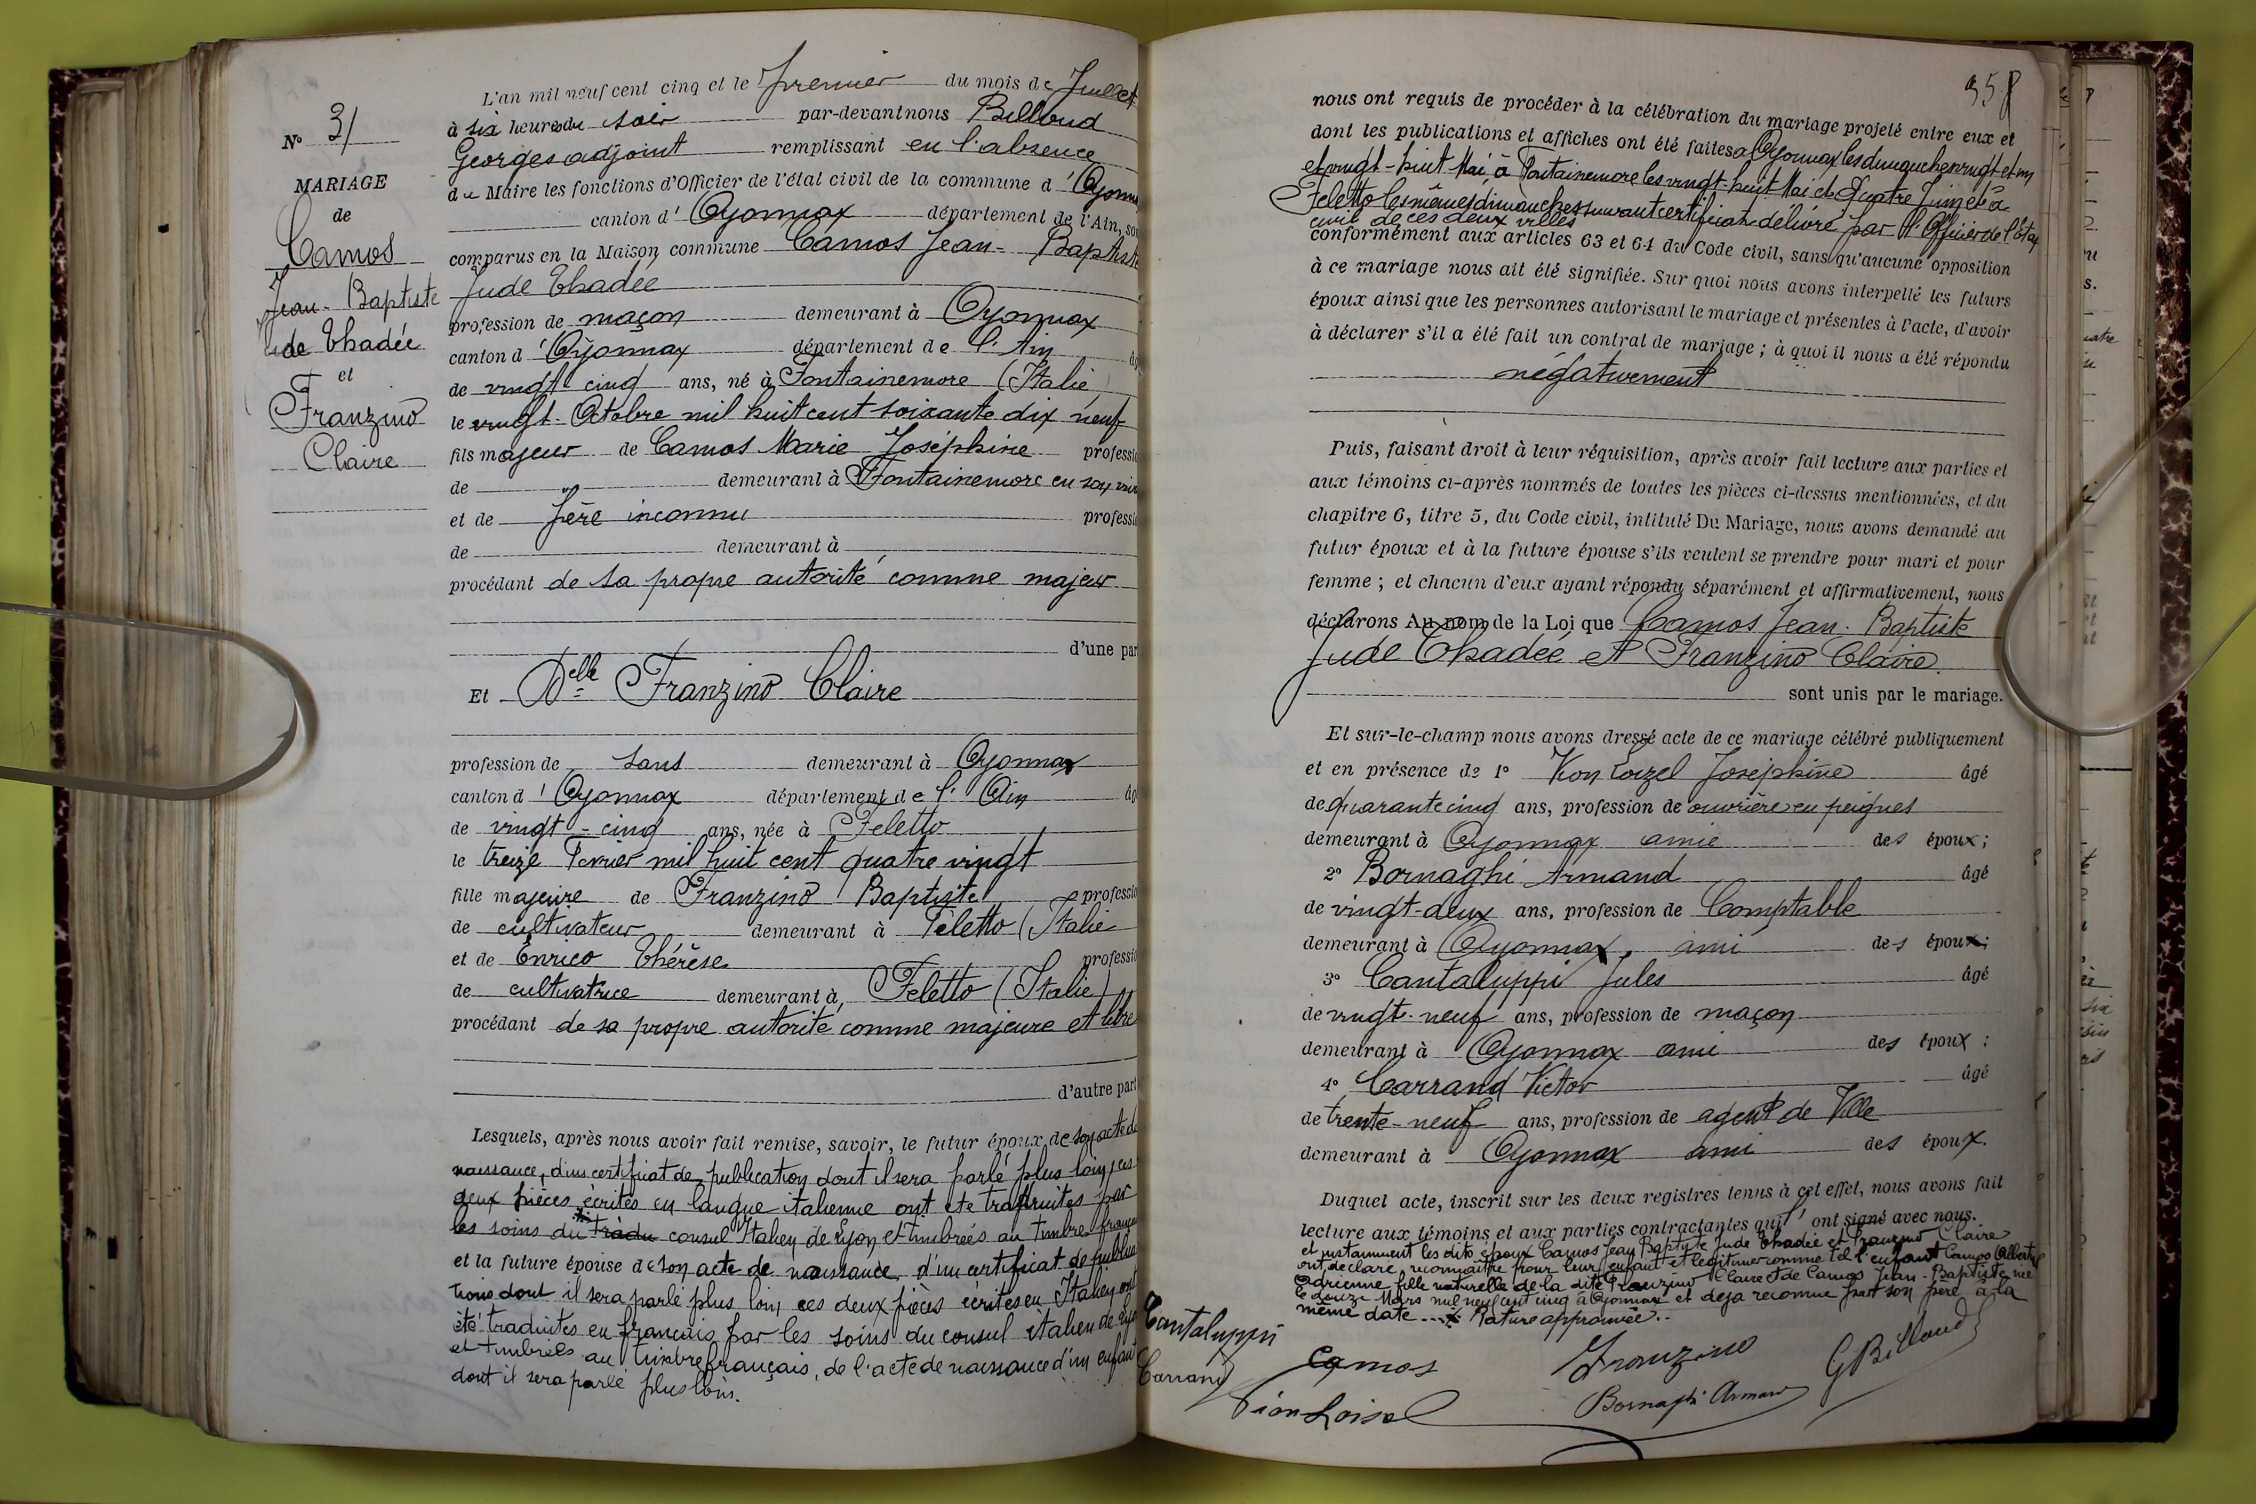 N° 31
MARIAGE
de
Camos
Jean-Baptiste
Jude Thadée
et
Franzino
Claire
L'an mil neuf cent cinq et le premier du mois de Juillet
à six heures du soir par-devant nous Billoud
Georges adjoint remplissant en l'absence
du Maire les fonctions d'Officier de l'état civil de la commune d'Oyonna
canton d'Oyonnax département de l'Ain, so
comparus en la Maison commune Camos Jean-Baptiste
Jude Thadée
profession de maçon demeurant à Oyonnax
canton d'Oyonnax département de l'Ain âg
de vingt cinq ans, né à Fontainemore (Italie)
le vingt Octobre mil huit cent soixante dix neuf
fils majeur de Camos Marie Joséphine professio
de " demeurant à Fontainemore en son viv
et de père inconnu professio
de demeurant à
procédant de sa propre autorité comme majeur
d'une par
Et Delle Franzino Claire
profession de sans demeurant à Oyonnax
canton d'Oyonnax département de l'Ain âg
de vingt-cinq ans, née à Feletto
le treize Fevrier mil huit cent quatre vingt
fille majeure de Franzino Baptiste professio
de cultivateur demeurant à Feletto (Italie
et de Enrico Thérèse professio
de cultivatrice demeurant à Feletto (Italie)
procédant de sa propre autorité comme majeure et libre
d'autre part
Lesquels, après nous avoir fait remise, savoir, le futur époux de son acte de
naissance, d'un certificat de publication dont il sera parlé plus loin, ces
deux pièces écrites en langue italienne ont été traduites par
les soins du tradu consul Italien de Lyon et timbrées au timbre françai
et la future épouse de son acte de naissance, d'un certificat de publica
tions dont il sera parlé plus loin, ces deux pièces écrites en Italien ont
été traduites en français par les soins du consul italien de Lyon
et timbrées au timbre français, de l'acte de naissance d'un enfant
dont il sera parlé plus loin.
358
nous ont requis de procéder à la célébration du mariage projeté entre eux et
dont les publications et affiches ont été faites à Oyonnax les dimanches vingt et un
et vingt-huit Mai à Fontainemore les vingt-huit Mai et Quatre Juin et à
Feletto les mêmes dimanches suivant certificats délivré par l'Officier de l'état
civil de ces deux villes
conformément aux articles 63 et 64 du Code civil, sans qu'aucune opposition
à ce mariage nous ait été signifiée. Sur quoi nous avons interpellé les futurs
époux ainsi que les personnes autorisant le mariage et présentes à l'acte, d'avoir
à déclarer s'il a été fait un contrat de mariage ; à quoi il nous a été répondu
négativement
Puis, faisant droit à leur réquisition, après avoir fait lecture aux parties et
aux témoins ci-après nommés de toutes les pièces ci-dessus mentionnées, et du
chapitre 6, titre 5, du Code civil, intitulé Du Mariage, nous avons demandé au
futur époux et à la future épouse s'ils veulent se prendre pour mari et pour
femme ; et chacun d'eux ayant répondu séparément et affirmativement, nous
déclarons Au nom de la Loi que Camos Jean-Baptiste
Jude Thadée et Franzino Claire
sont unis par le mariage.
Et sur-le-champ nous avons dressé acte de ce mariage célébré publiquement
et en présence de 1° Joséphine âgé
de quarante cinq ans, profession de ouvrière en peignes
demeurant à Oyonnax amie des époux ;
2° Bornaghi Armand âgé
de vingt-deux ans, profession de Comptable
demeurant à Oyonnax, ami des époux ;
3° Cantaluppi Jules âgé
de vingt-neuf ans, profession de maçon
demeurant à Oyonnax ami des époux ;
4° Carrand Victor âgé
de trente-neuf ans, profession de agent de Ville
demeurant à Oyonnax ami des époux.
Duquel acte, inscrit sur les deux registres tenus à cet effet, nous avons fait
lecture aux témoins et aux parties contractantes qui l'ont signé avec nous.
et instamment les dits époux Camos Jean Baptiste Jude Thadée et Franzino Claire
ont déclaré reconnaître pour leur enfant et légitimer comme tel l'enfant Camos Alberte
Adrienne fille naturelle de la dite Franzino Claire et de Camos Jean-Baptiste née
le douze Mars mil neuf cent cinq à Oyonnax et déjà reconnue par son père à la
même date ... rature approuvée..
Cantaluppi
Camos
Franzino
GBilloud
Carrand
Bornaghi Armand